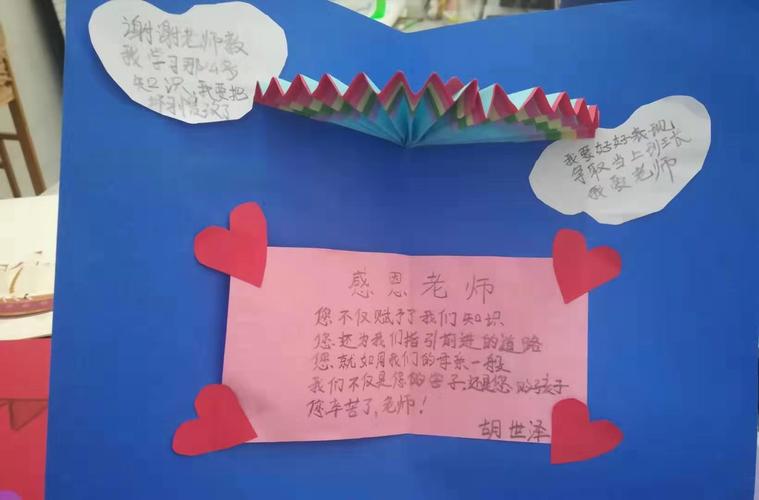 谢谢老师教
我学习那么多
知识,我要把
我要好好表现,
争取当上班长
我爱老师
感恩老师
您不仅赋予了我们知识
您还为我们指引前进的道路
您就如同我们的母亲一般
我们不仅是您的学子,还是您的孩子
您辛苦了,老师!
胡世泽